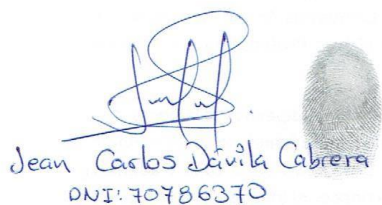 Jean Carlos Dávila Cabrera
DNI: 70786370